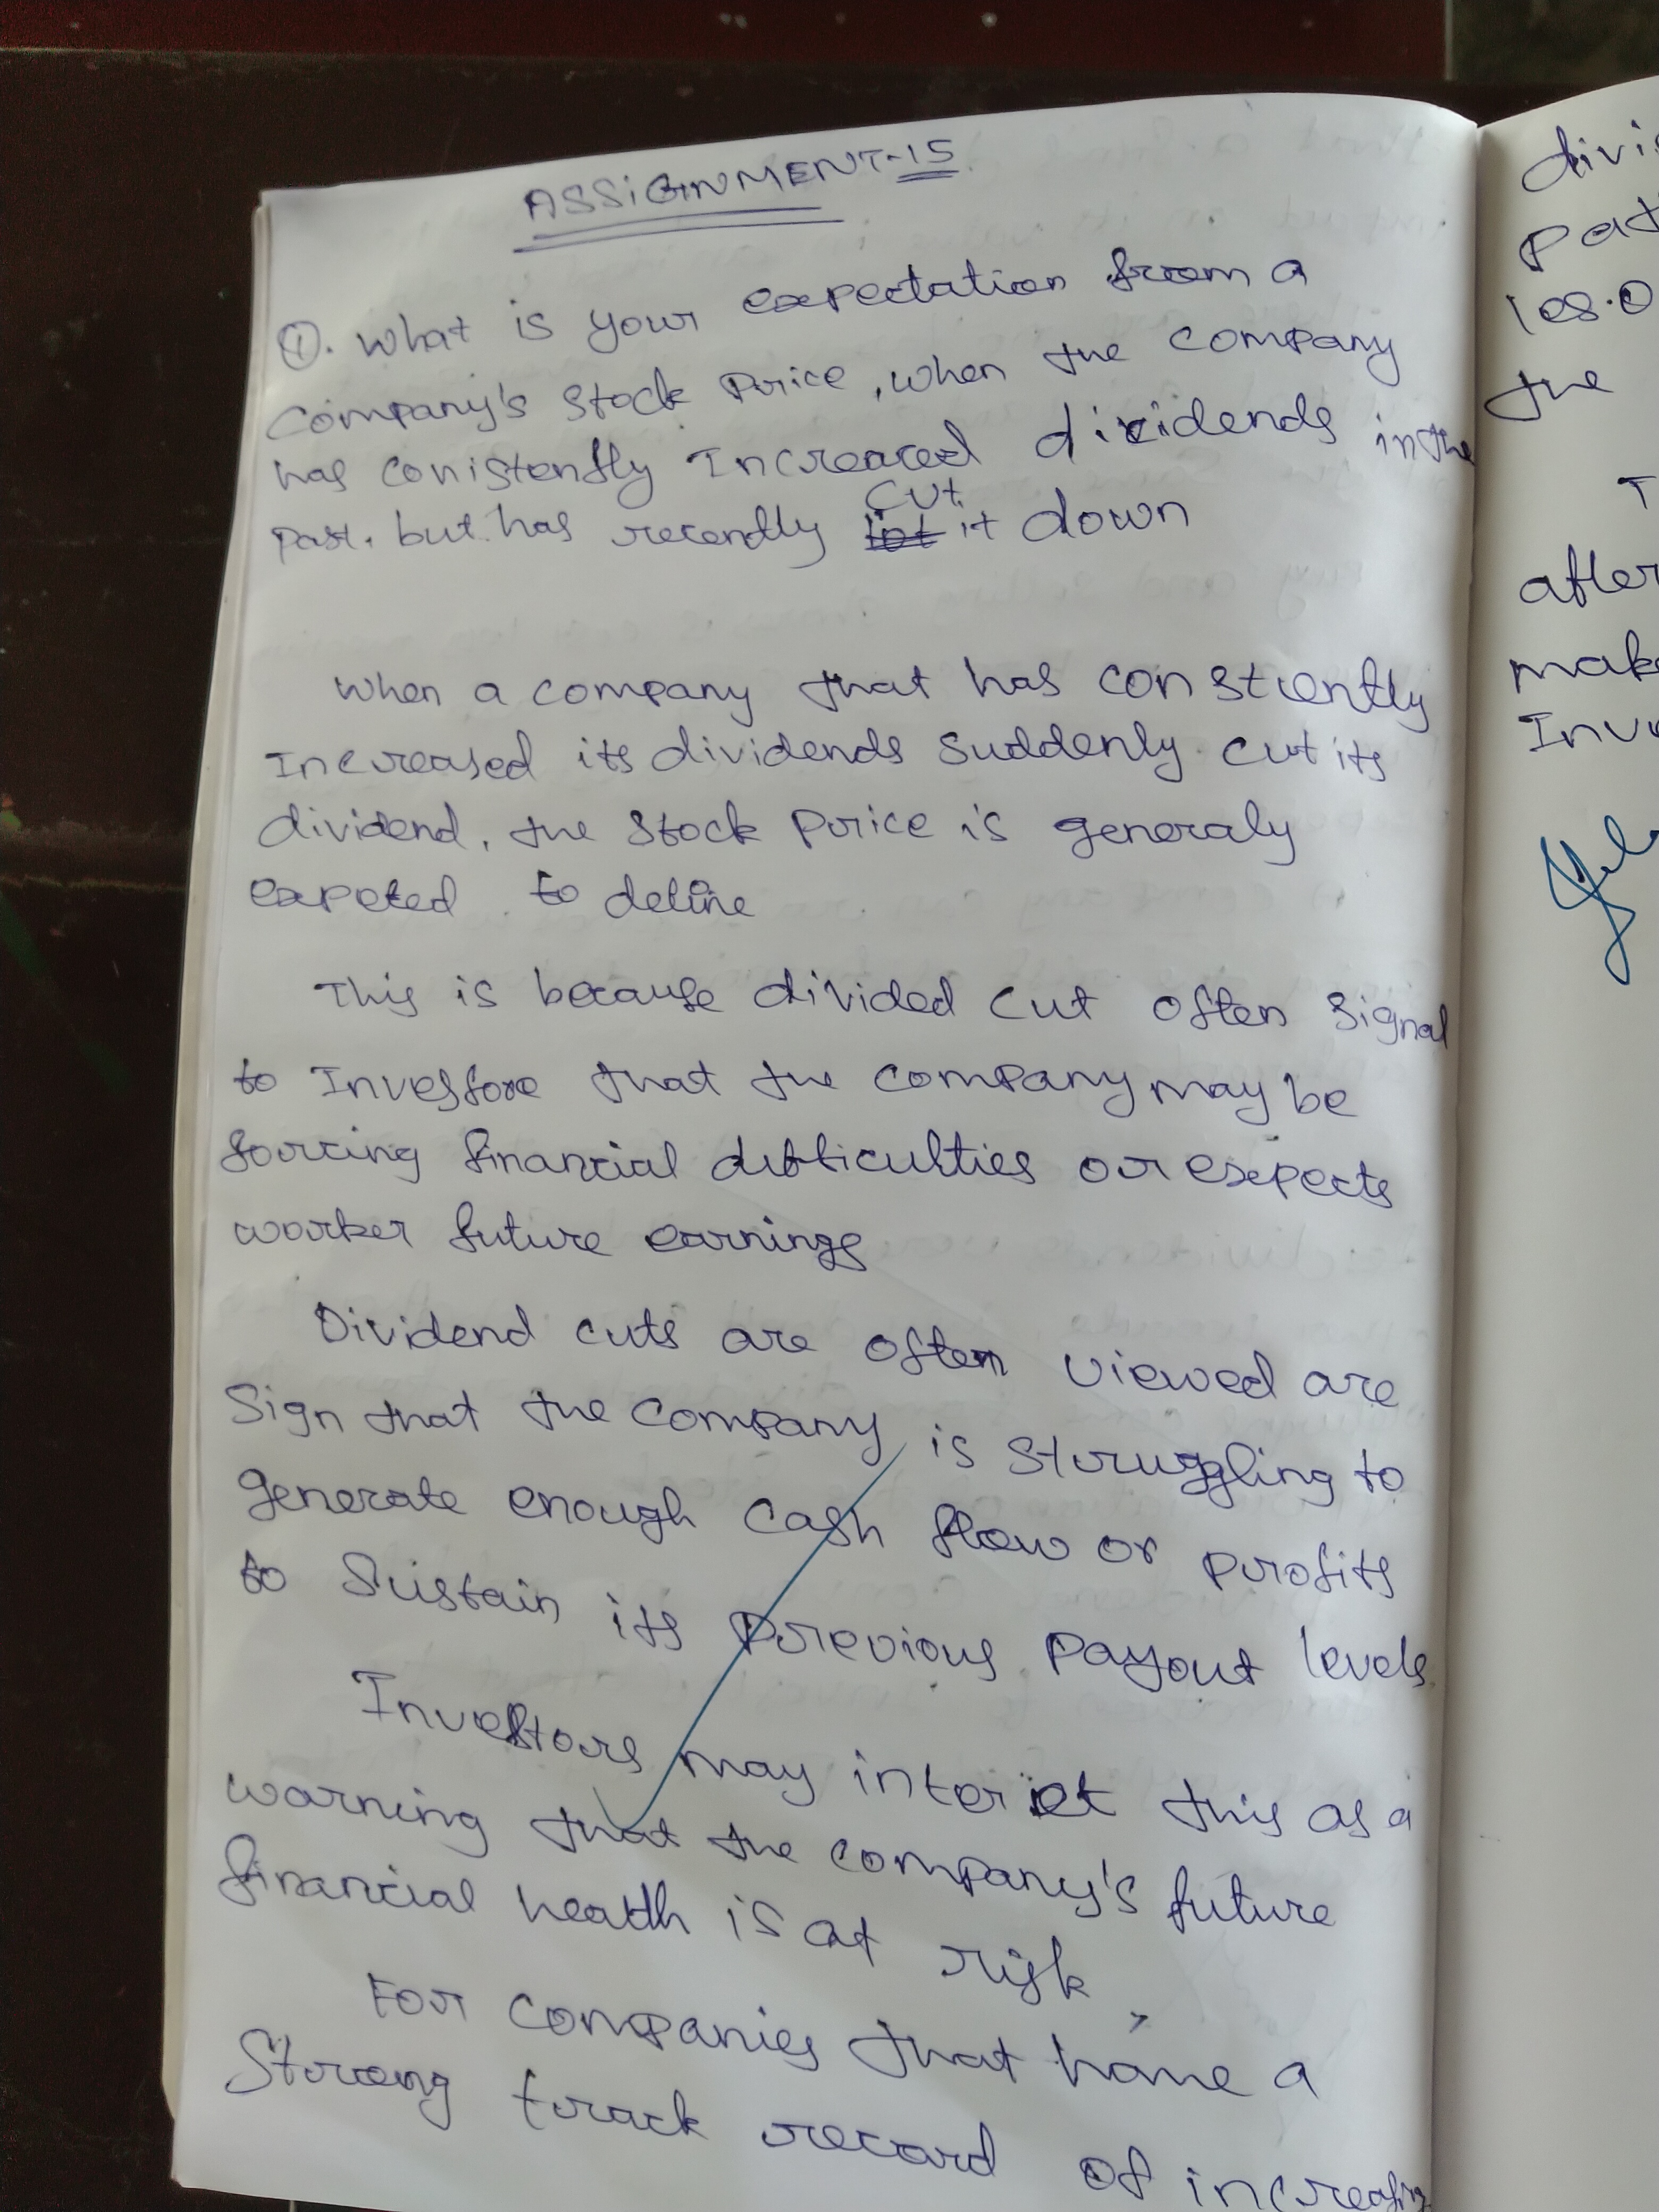 ASSIGNMENT-15
①. What is your expectation from a
Company's stock price, when the company
has conistently Increaced dividends in the
past. but has recently cut it down
When a company that has constiently
Increased its dividends suddenly cut its
dividend, the stock price is generaly
expeted to define
This is because divided cut often signal
to Investore that the company may be
forcing financial difficulties or expects
worker future earnings
Dividend cuts are often viewed are
Sign that the company is struggling to
generate enough cash flow or profits
to Sustain its previous payout levels.
Investors may interiet this as a
warning that the company's future
financial health is at risk,
For companies that have a
Strong track record of increasing
divi
pat
108.0
the
T
after
make
Inve